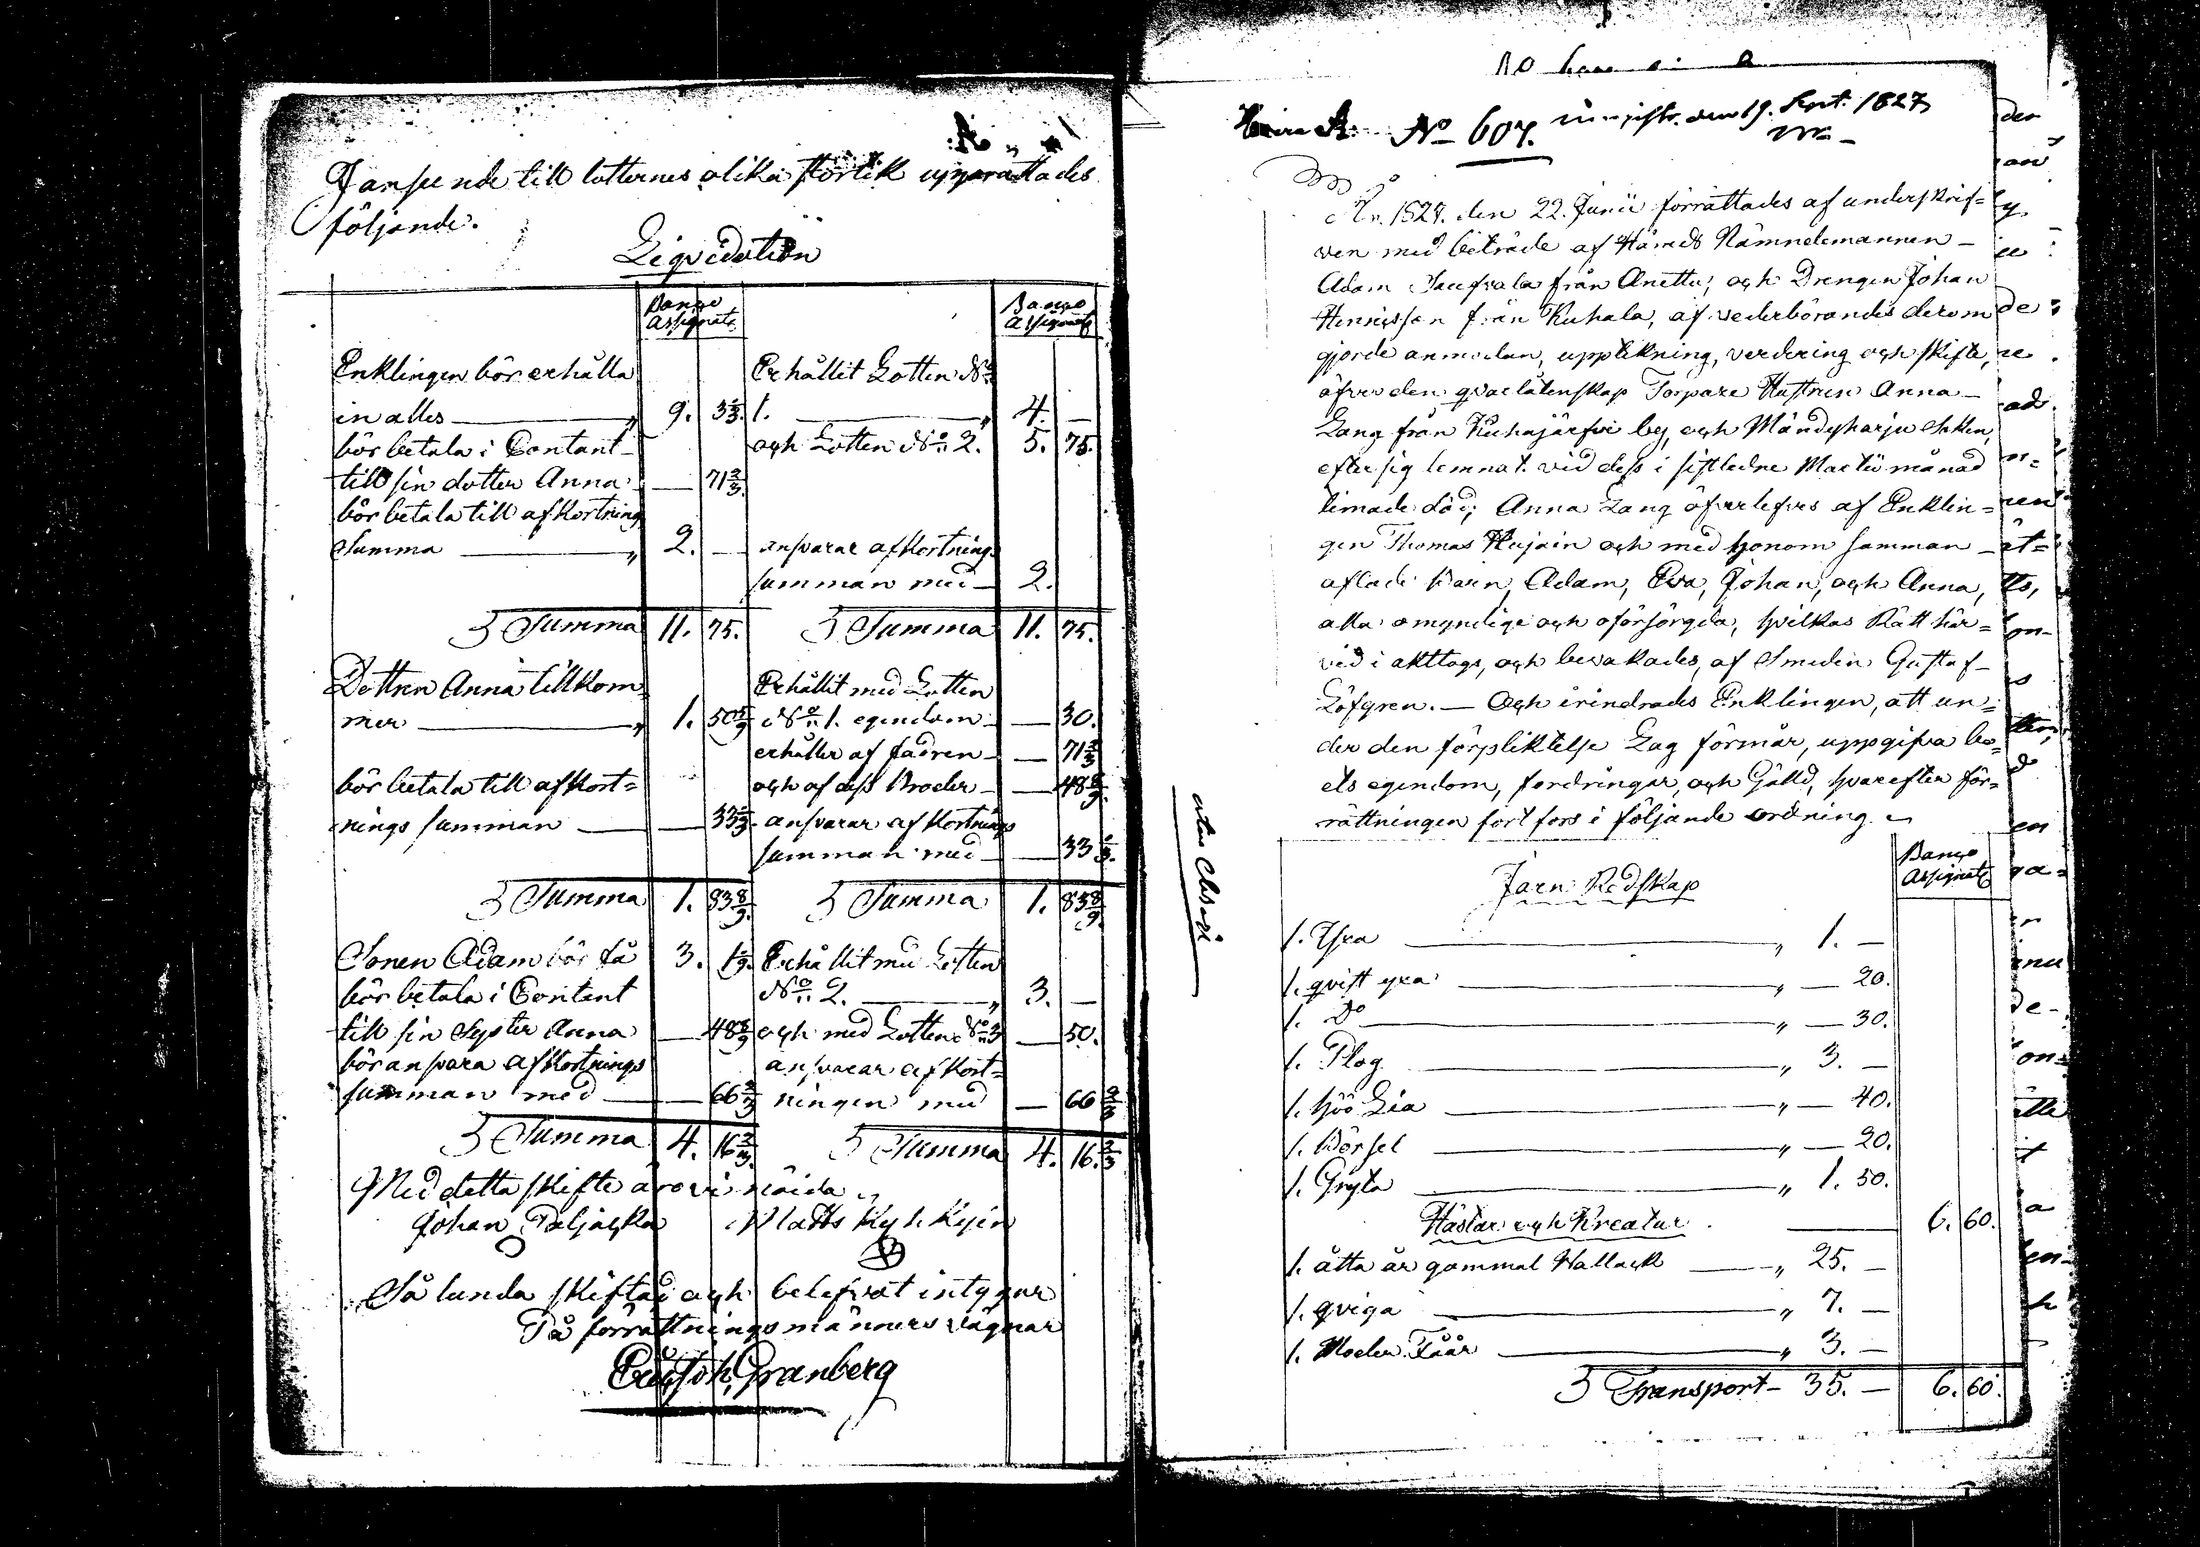 I anseende till lotternes olika storlek upprättades
följande.
Liqvidation
Banco Assignat:
Banco Assignat:
Enklingen bör erhålla
in alles 9. 3 1/3.
bör betala i Contant
till sin dotter Anna — 71 2/3.
bör betala till afkortning
Summa 2. —
Summa 11. 75.
Erhållit Lotten No
1. 4. —
och Lotten No 2. 5. 75.
ansvarar afkortnings
summan med 2.
Summa 11. 75.
Dottren Anna tillkom
mer 1. 50 5/9
bör betala till afkort=
nings summan — 33 1/3.
Summa 1. 83 8/9.
Erhållit med Lotten
No 1. egendom — 30.
erhåller af fadren — 71 2/3
och af dess Broder — 48 8/9.
ansvarar afkortnings
summan med — 33 1/3.
Summa 1. 83 8/9.
Sonen Adam bör få 3. 1 1/9.
bör betala i Contant
till sin Syster Anna — 48 8/9
bör ansvara afkortnings
summan med — 66 2/3
Summa 4. 16 2/3.
Erhållit med Lotten
No 2. 3. —
och med Lotten No 3 — 50.
ansvarar afkort=
ningen med — 66 2/3
Summa 4. 16. 2/3
Med detta skifte äro vi nöida
Johan Paljacka Matts Kyhkyin
Sålunda skiftad och belefvat intygar
På förrättningsmänners vägnar
Granberg
No 607. den 19. Sept. 1827
År 1827. den 22. Junii förrättades af underskrif=
ven med biträde af Härads Nämndemannen
Adam från Anttu, och Drengen Johan
Hennisson från Kuhala, af vederbörandes derom
gjorde anmodan, uppteckning, verdering och skifte,
öfver den qvarlåtenskap Torpare Hustrun Anna
Lang från Kuhajärfvi by, och Mändyharju Sokn,
efter sig lemnat vid dess i sistledne Martii månad
timade död; Anna Lang öfverlefves af Enklin=
gen Thomas Hujain och med honom samman
aflade barn, Adam, Eva, Johan, och Anna,
alla omyndige och oförsörgda, hvilkas Rätt här=
vid i akttogs, och bevakades, af Smeden Gustaf
Löfgren. — Och erindrades Enklingen, att un=
der den förpliktelse Lag förmår, uppgifva bo=
ets egendom, fordringar och Gäld, hvarefter för=
rättningen fortfors i följande ordning.
Banco Assignat:
Järn Redskap
1. Yxa 1. —
1. qvist yxa — 20.
1. Do — 30.
1. Plog 3. —
1. höö Lia — 40.
1. Börsel — 20.
1. Gryta 1. 50.
6. 60.
Hästar och Kreatur
1. åtta år gammal Wallack 25. —
1. qviga 7. —
1. Moder Fåår 3. —
Transport 35. — 6. 60.